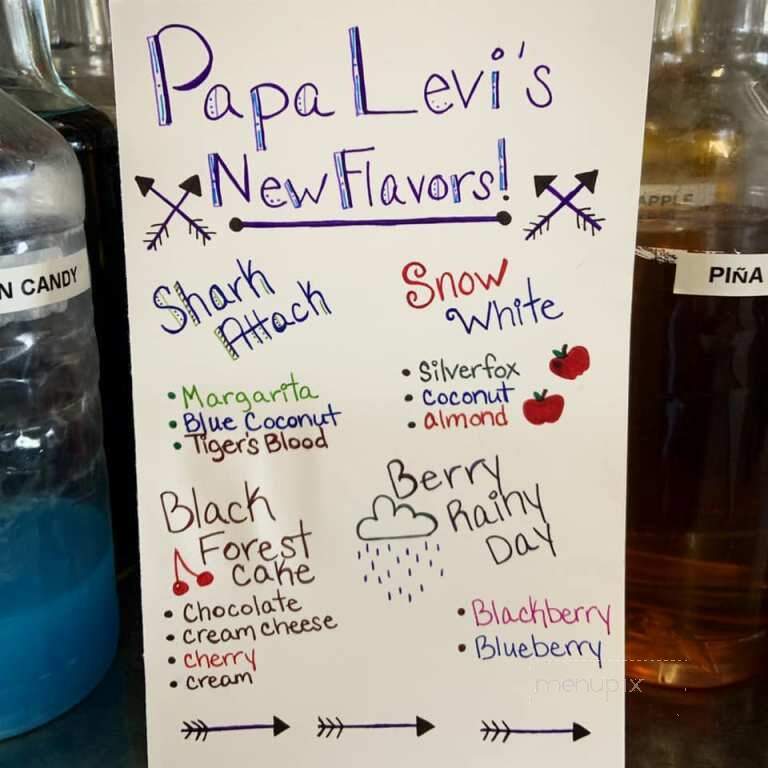 Papa Levi's
New Flavors!
Shark
Attack
• Margarita
• Blue Coconut
• Tiger's Blood
Snow
White
• Silverfox
• coconut
• almond
Black
Forest
cake
• Chocolate
• cream cheese
• cherry
• cream
Berry
Rainy
Day
• Blackberry
• Blueberry
N CANDY
APPLE
PIñA
menupix